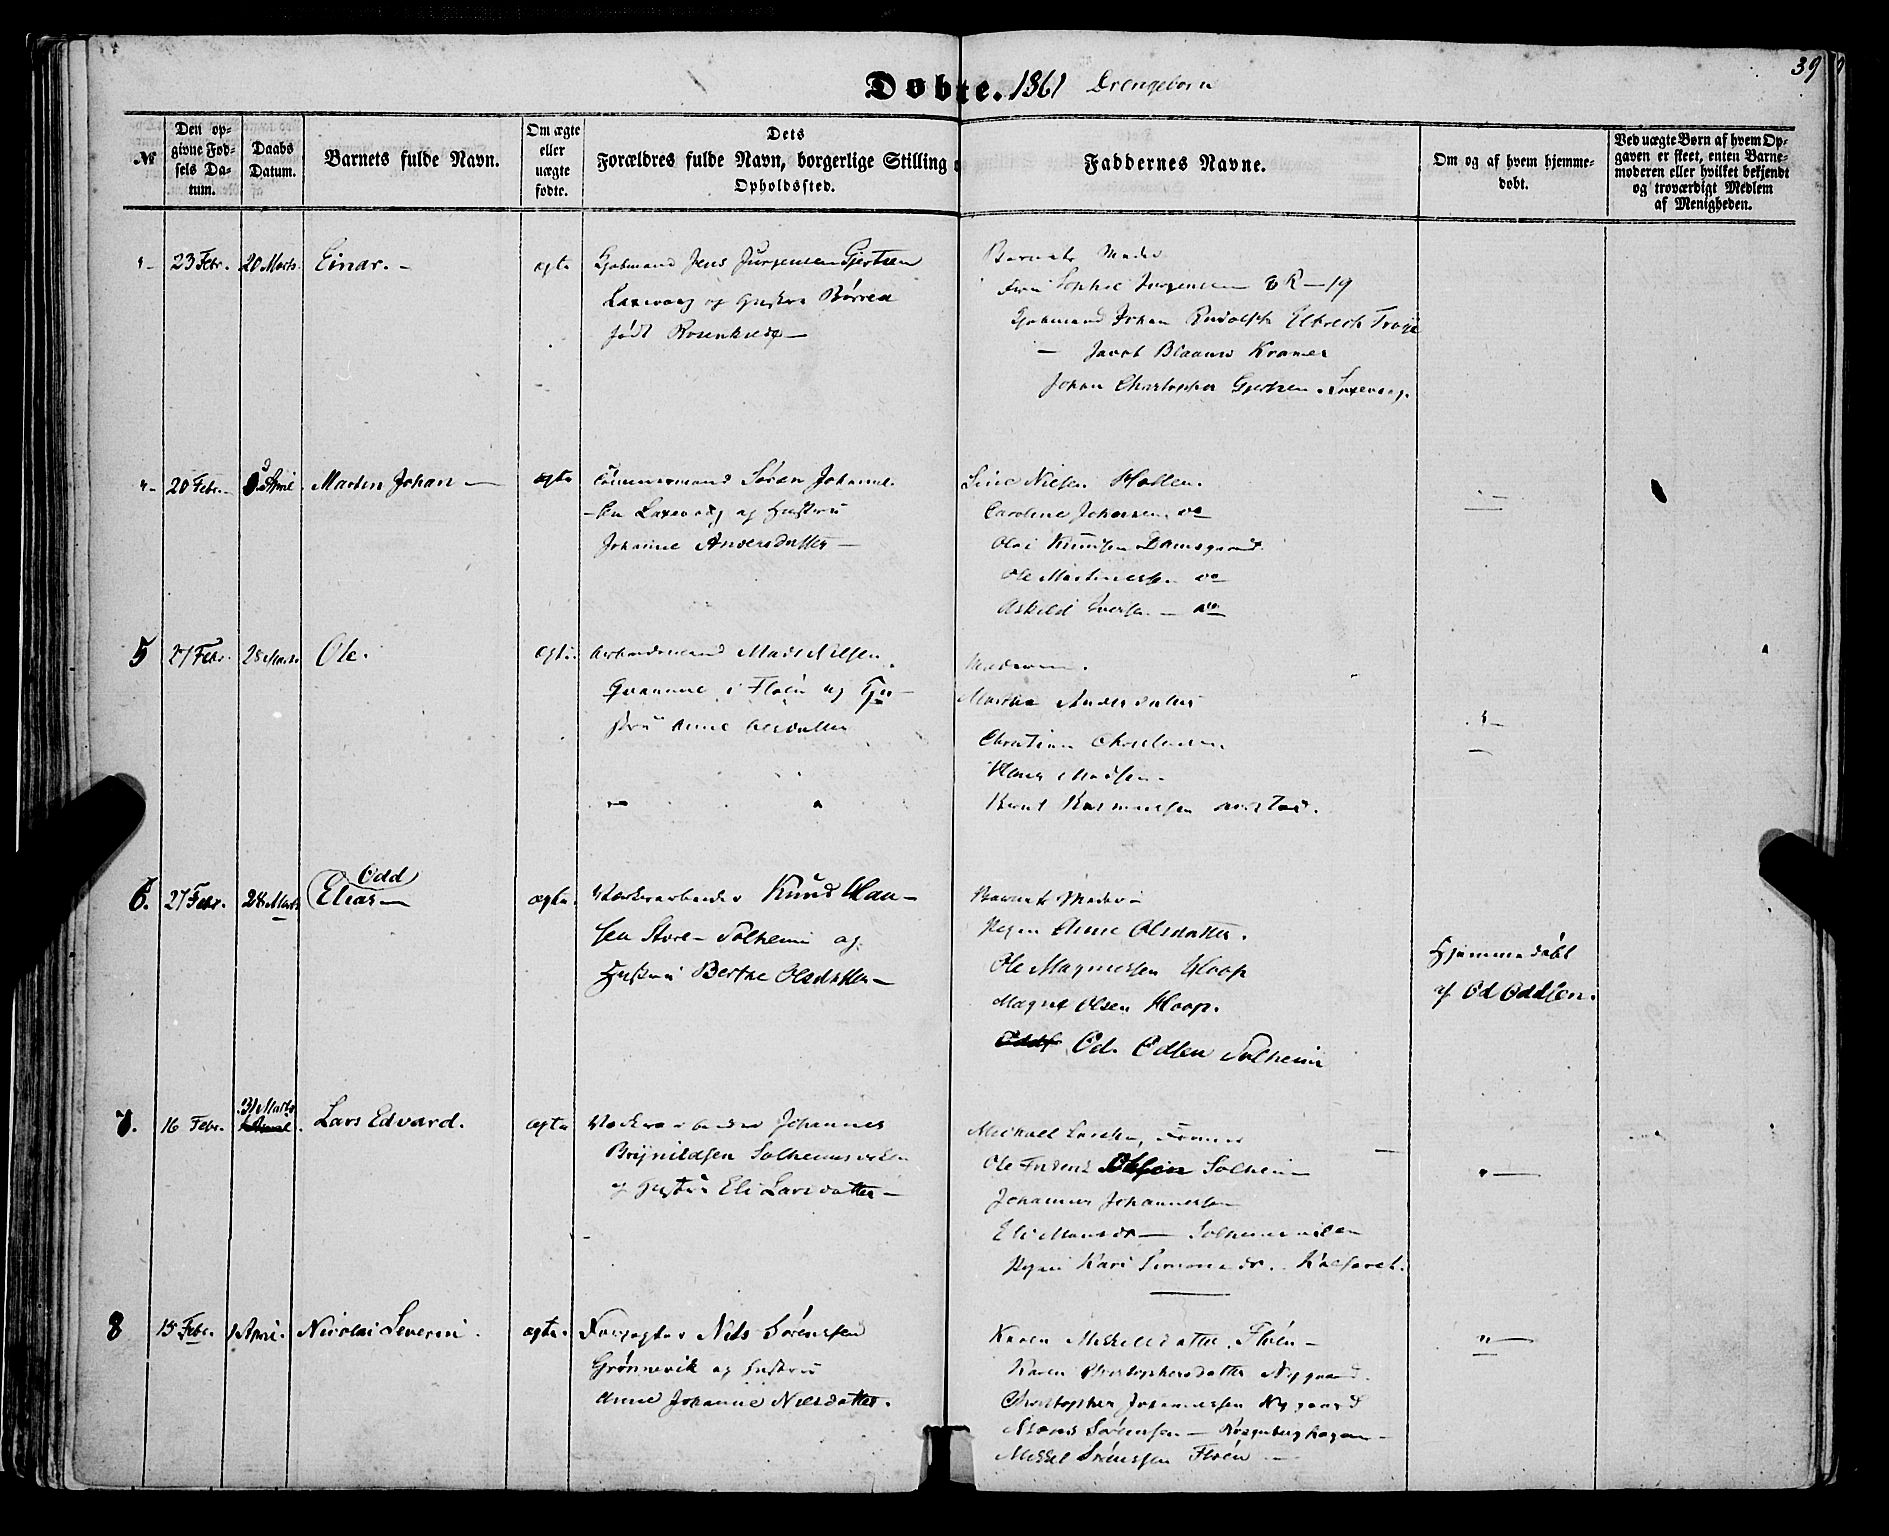 39
Døbte. 1861 Drengebørn
№
Den op-
givne Fød-
sels Da-
tum.
Daabs
Datum.
Barnets fulde Navn.
Om ægte
eller
uægte
fødte.
Dets
Forældres fulde Navn, borgerlige Stilling
Opholdssted.
Faddernes Navne.
Om og af hvem hjemme-
døbt.
Ved uægte Børn af hvem Op-
gaven er skeet, enten Barne-
moderen eller hvilket bekjendt
og troværdigt Medlem
af Menigheden.
23 Febr. 20 Marts. Einar. ægte
Kjøbmand Jens Jürgensen Gjertsen
Laxevaag og Hustru
født Rosenkilde
Barnets Moder
Sophie Jürgensen
Kjøbmand Johan Rudolph Elbrech Troye
Jacob Blaauw Kramer
Johan Christopher Gjertsen Laxevaag.
20 Febr. April Marten Johan ægte
Tømmermand Søren Johanne-
sen Laxevaag og Hustru
Johanne Andersdatter
Nielsen Holten.
Caroline Johansen do
Olai Knudsen Damsgaard.
Ole Martinussen do
Askild Iversen do
5 27 Febr. 28 Marts Ole. ægte.
Arbeidsmand Mads Nilsen
i Fløen og Hu-
stru Anne
Moderen.
Martha Andersdatter
Christian
Hans Madsen
Rasmussen
6. 27 Febr. 28 Marts
Odd
Elias ægte.
Værksarbeider Knud Han-
sen Store-Solheim og
Hustru Berthe Olsdatter
Barnets Moder
Pigen Anne Olsdatter.
Ole Magnussen Hoop
Magne Olsen Hoop.
Od. Odsen Solheim
Hjemmedøbt
af Od Oddsen.
7. 16 Febr. 31 Marts
Lars Edvard. ægte
Værksarbeider Johannes
Brynildsen Solheimsviken
og Hustru Eli Larsdatter
Michael Larsen,
Ole Olsen Solheim
Johannes Johannessen
Eli Monsdr Solheimsviken
Pigen Kari Simonsdr. Kalfaret.
8 15 Febr. 1 April. Nicolai Severin. ægte.
Forpagter Nils Sørensen
Grønnevik og Hustru
Anne Johanne Nilsdatter.
Karen Mikkelsdatter. Fløen
Karen Christophersdatter Nygaard.
Christopher Johannessen Nygaard
Sørensen Rosenberghagen
Mikkel Sørensen Fløen